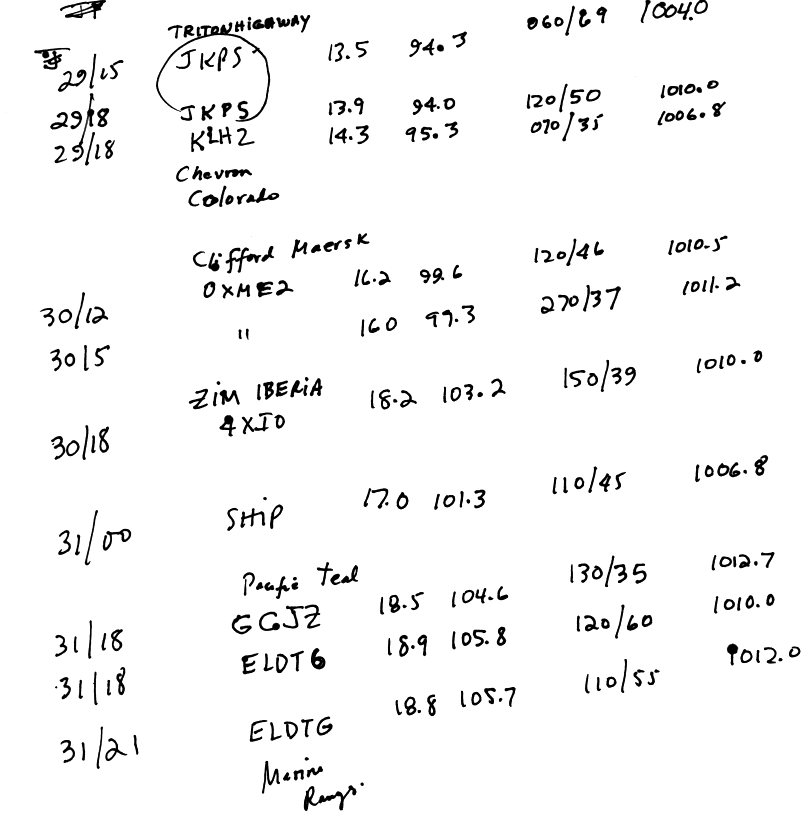 TRITON HIGHWAY
29/15 JKPS 13.5 94.3 060/69 1004.0
29/18 JKPS 13.9 94.0 120/50 1010.0
29/18 KLHZ 14.3 95.3 070/35 1006.8
Chevron
Colorado
Clifford Maersk
30/12 OXME2 16.2 99.6 120/46 1010.5
3015 " 160 99.3 270/37 1011.2
ZIM IBERIA
30/18 4XIO 18.2 103.2 150/39 1010.0
31/00 SHIP 17.0 101.3 110/45 1006.8
Pacific Teal
31/18 GCJZ 18.5 104.6 130/35 1012.7
31/18 ELDT6 18.9 105.8 120/60 1010.0
31/21 ELDTG 18.8 105.7 110/55 1012.0
Marine